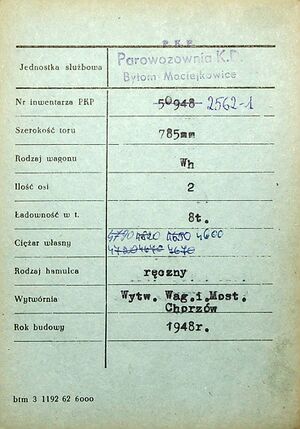 P.K.P.
Jednostka służbowa Parowozownia K.D.
Bytom Maciejkowice
Nr inwentarza PKP 50948 2562-1
Szerokość toru 785mm
Rodzaj wagonu Wh
Ilość osi 2
Ładowność w t. 8t.
Ciężar własny 4790 4620 4650 4600
4720 4670 4670
Rodzaj hamulca ręczny
Wytwórnia Wytw. Wag.i.Most.
Chorzów
Rok budowy 1948r.
btm 3 1192 62 6000